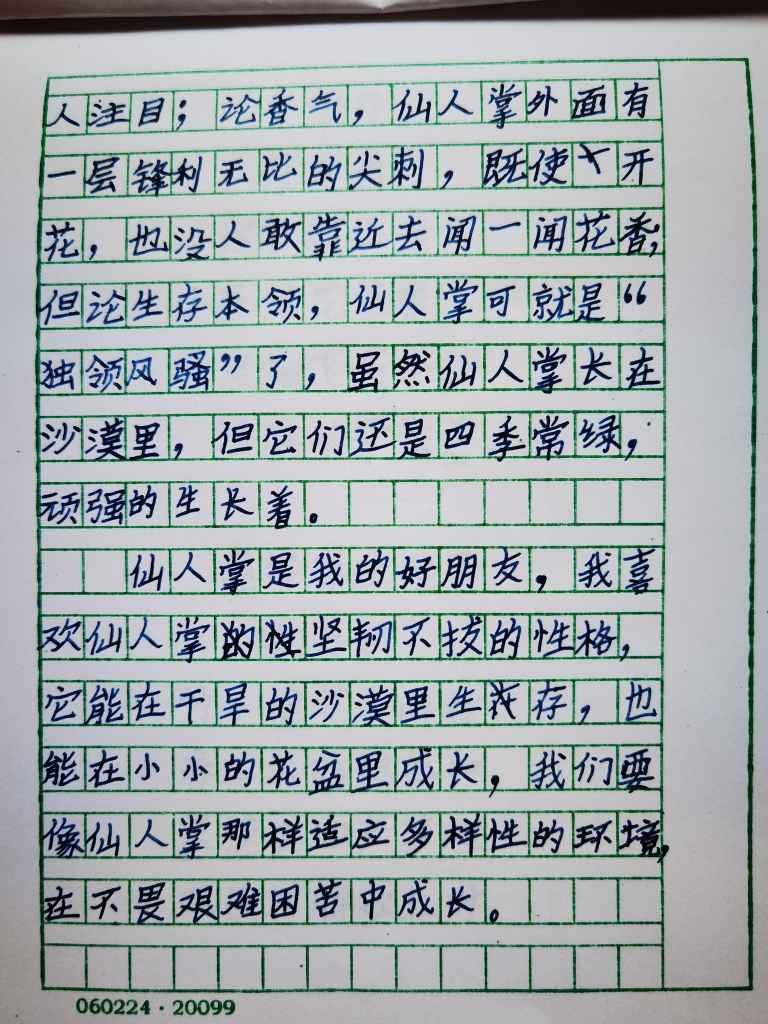 人注目；论香气，仙人掌外面有
一层锋利无比的尖刺，既使开
花，也没人敢靠近去闻一闻花香，
但论生存本领，仙人掌可就是“
独领风骚”了，虽然仙人掌长在
沙漠里，但它们还是四季常绿，
顽强的生长着。
仙人掌是我的好朋友，我喜
欢仙人掌坚韧不拔的性格，
它能在干旱的沙漠里生存，也
能在小小的花盆里成长，我们要
像仙人掌那样适应多样性的环境，
在不畏艰难困苦中成长。
060224·20099